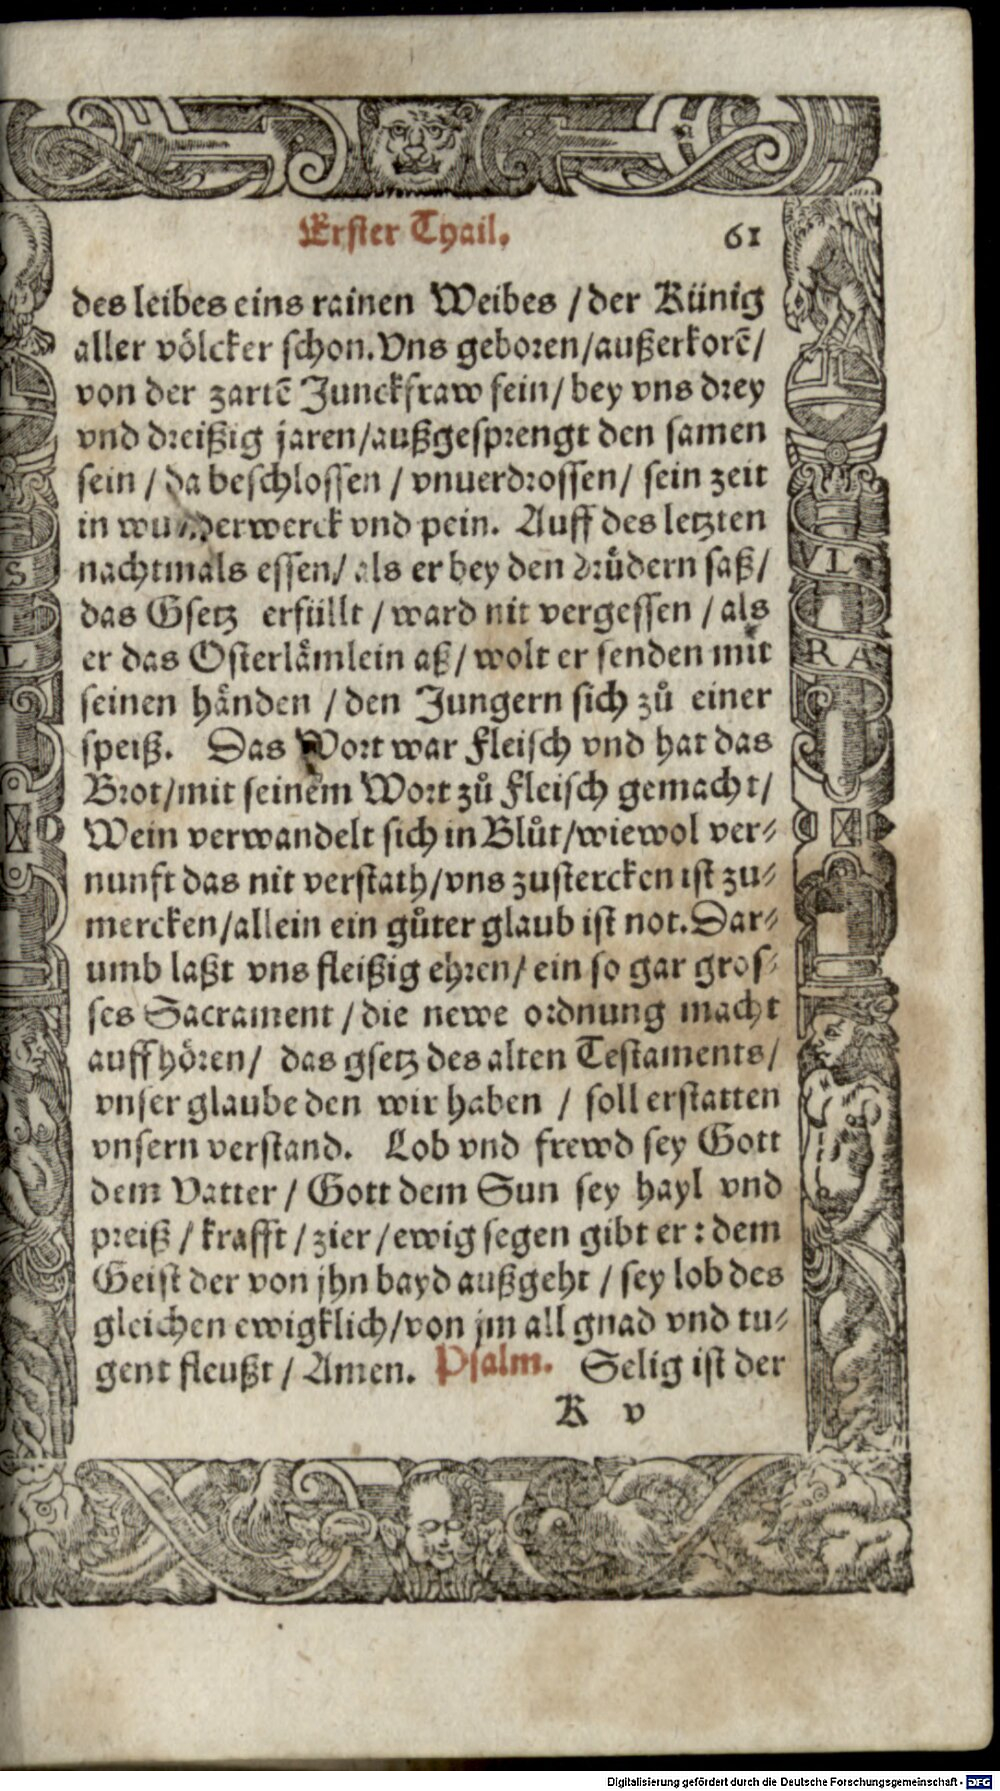 Erster Thail. 61
des leibes eins rainen Weibes / der Künig
aller völcker schon. Vns geboren/außerkorẽ/
von der zartẽ Junckfraw fein/ bey vns drey
vnd dreißig jaren/außgesprengt den samen
sein / da beschlossen / vnuerdrossen/ sein zeit
in wunderwerck vnd pein. Auff des letzten
nachtmals essen/ als er bey den Brůdern saß/
das Gsetz erfüllt / ward nit vergessen / als
er das Osterlåmlein aß/ wolt er senden mit
seinen hånden / den Jungern sich zů einer
speiß. Das Wort war Fleisch vnd hat das
Brot/mit seinem Wort zů Fleisch gemacht/
Wein verwandelt sich in Blůt/wiewol ver⸗
nunft das nit verstath/vns zustercken ist zu⸗
mercken/allein ein gůter glaub ist not. Dar⸗
umb laßt vns fleißig ehren/ ein so gar gros⸗
ses Sacrament / die newe ordnung macht
auffhören/ das gsetz des alten Testaments/
vnser glaube den wir haben / soll erstatten
vnsern verstand. Lob vnd frewd sey Gott
dem Vatter / Gott dem Sun sey hayl vnd
preiß / krafft / zier / ewig segen gibt er : dem
Geist der von jhn bayd außgeht / sey lob des
gleichen ewigklich/von jm all gnad vnd tu⸗
gent fleußt / Amen. Psalm. Selig ist der
K v
S
L
VI
RA
Digitalisierung gefördert durch die Deutsche Forschungsgemeinschaft - DFG